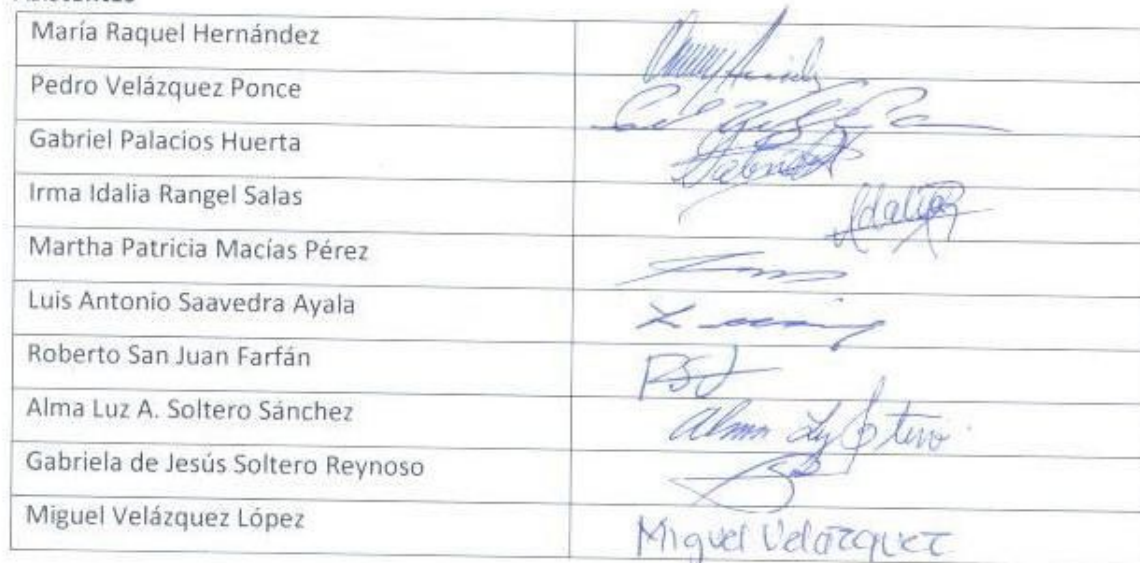 María Raquel Hernández
Pedro Velázquez Ponce
Gabriel Palacios Huerta
Irma Idalia Rangel Salas
Idalia
Martha Patricia Macías Pérez
Luis Antonio Saavedra Ayala
Roberto San Juan Farfán
RSJ
Alma Luz A. Soltero Sánchez
Alma Luz Soltero
Gabriela de Jesús Soltero Reynoso
Miguel Velázquez López
Miguel Velazquez